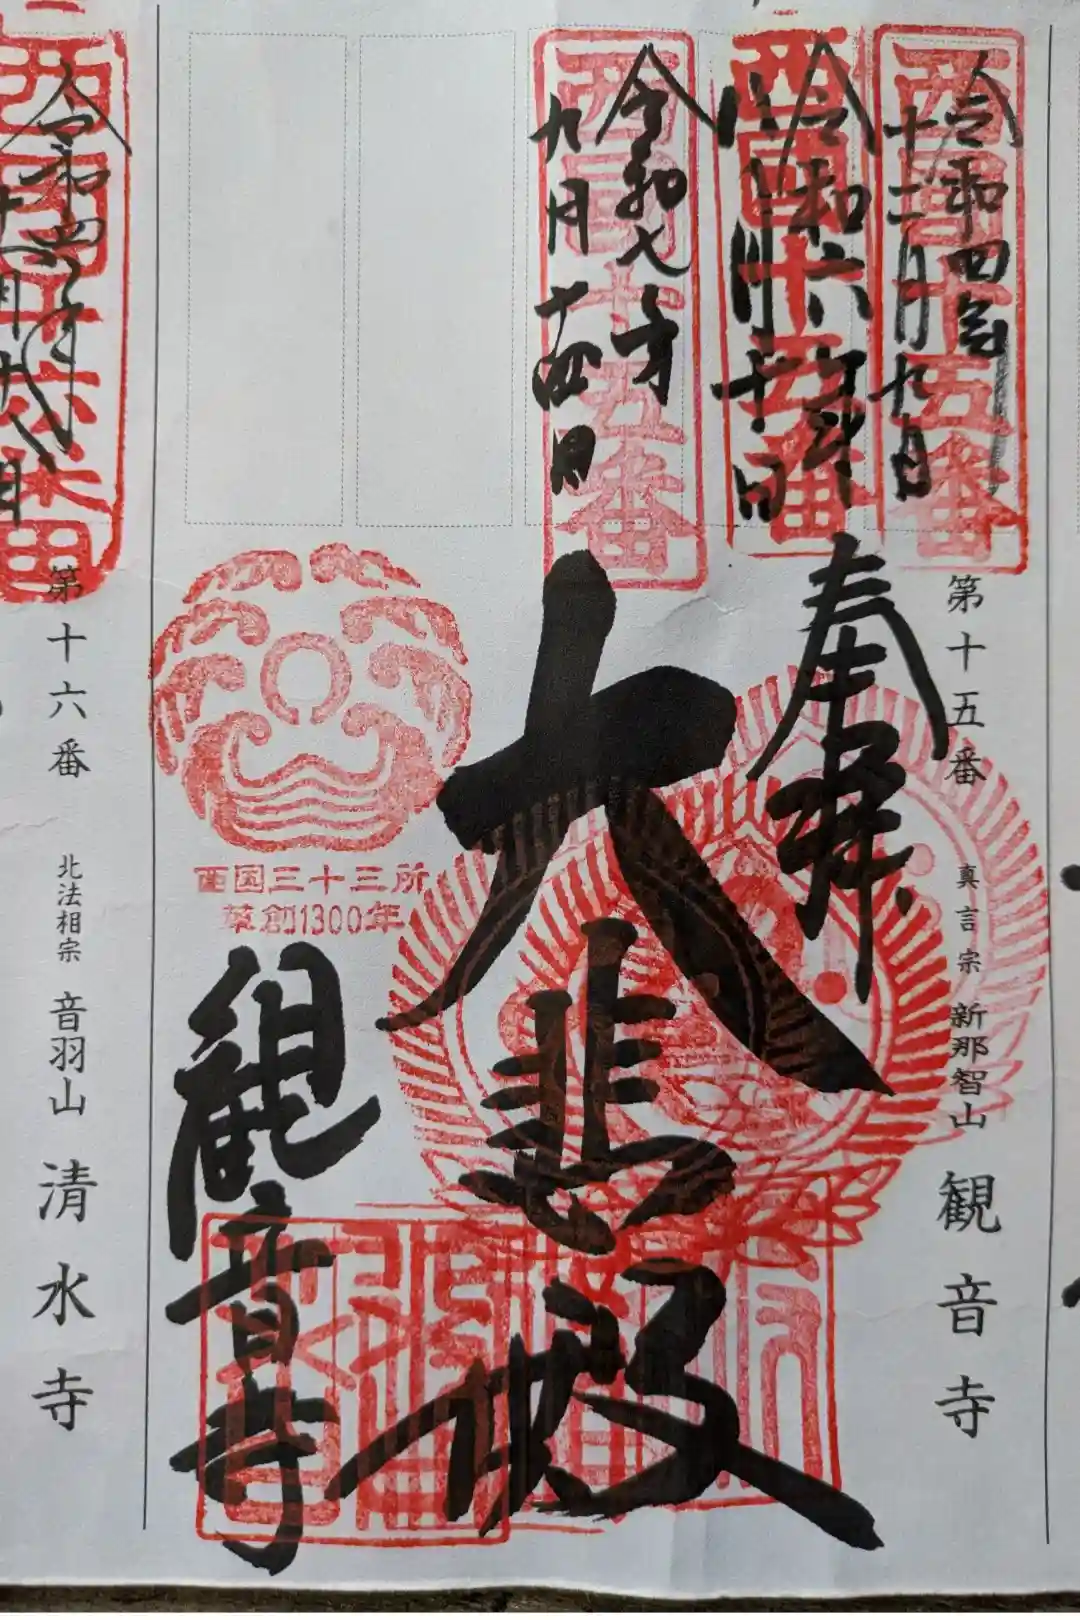 西國十五番
令和四年
十二月九日
西国十五番
令和六年
八月二十日
西国十五番
令和七年
九月十四日
奉拝
大悲殿
観音寺
西国三十三所
草創1300年
第十五番 真言宗 新那智山 観音寺
令和四年
第十六番 北法相宗 音羽山 清水寺